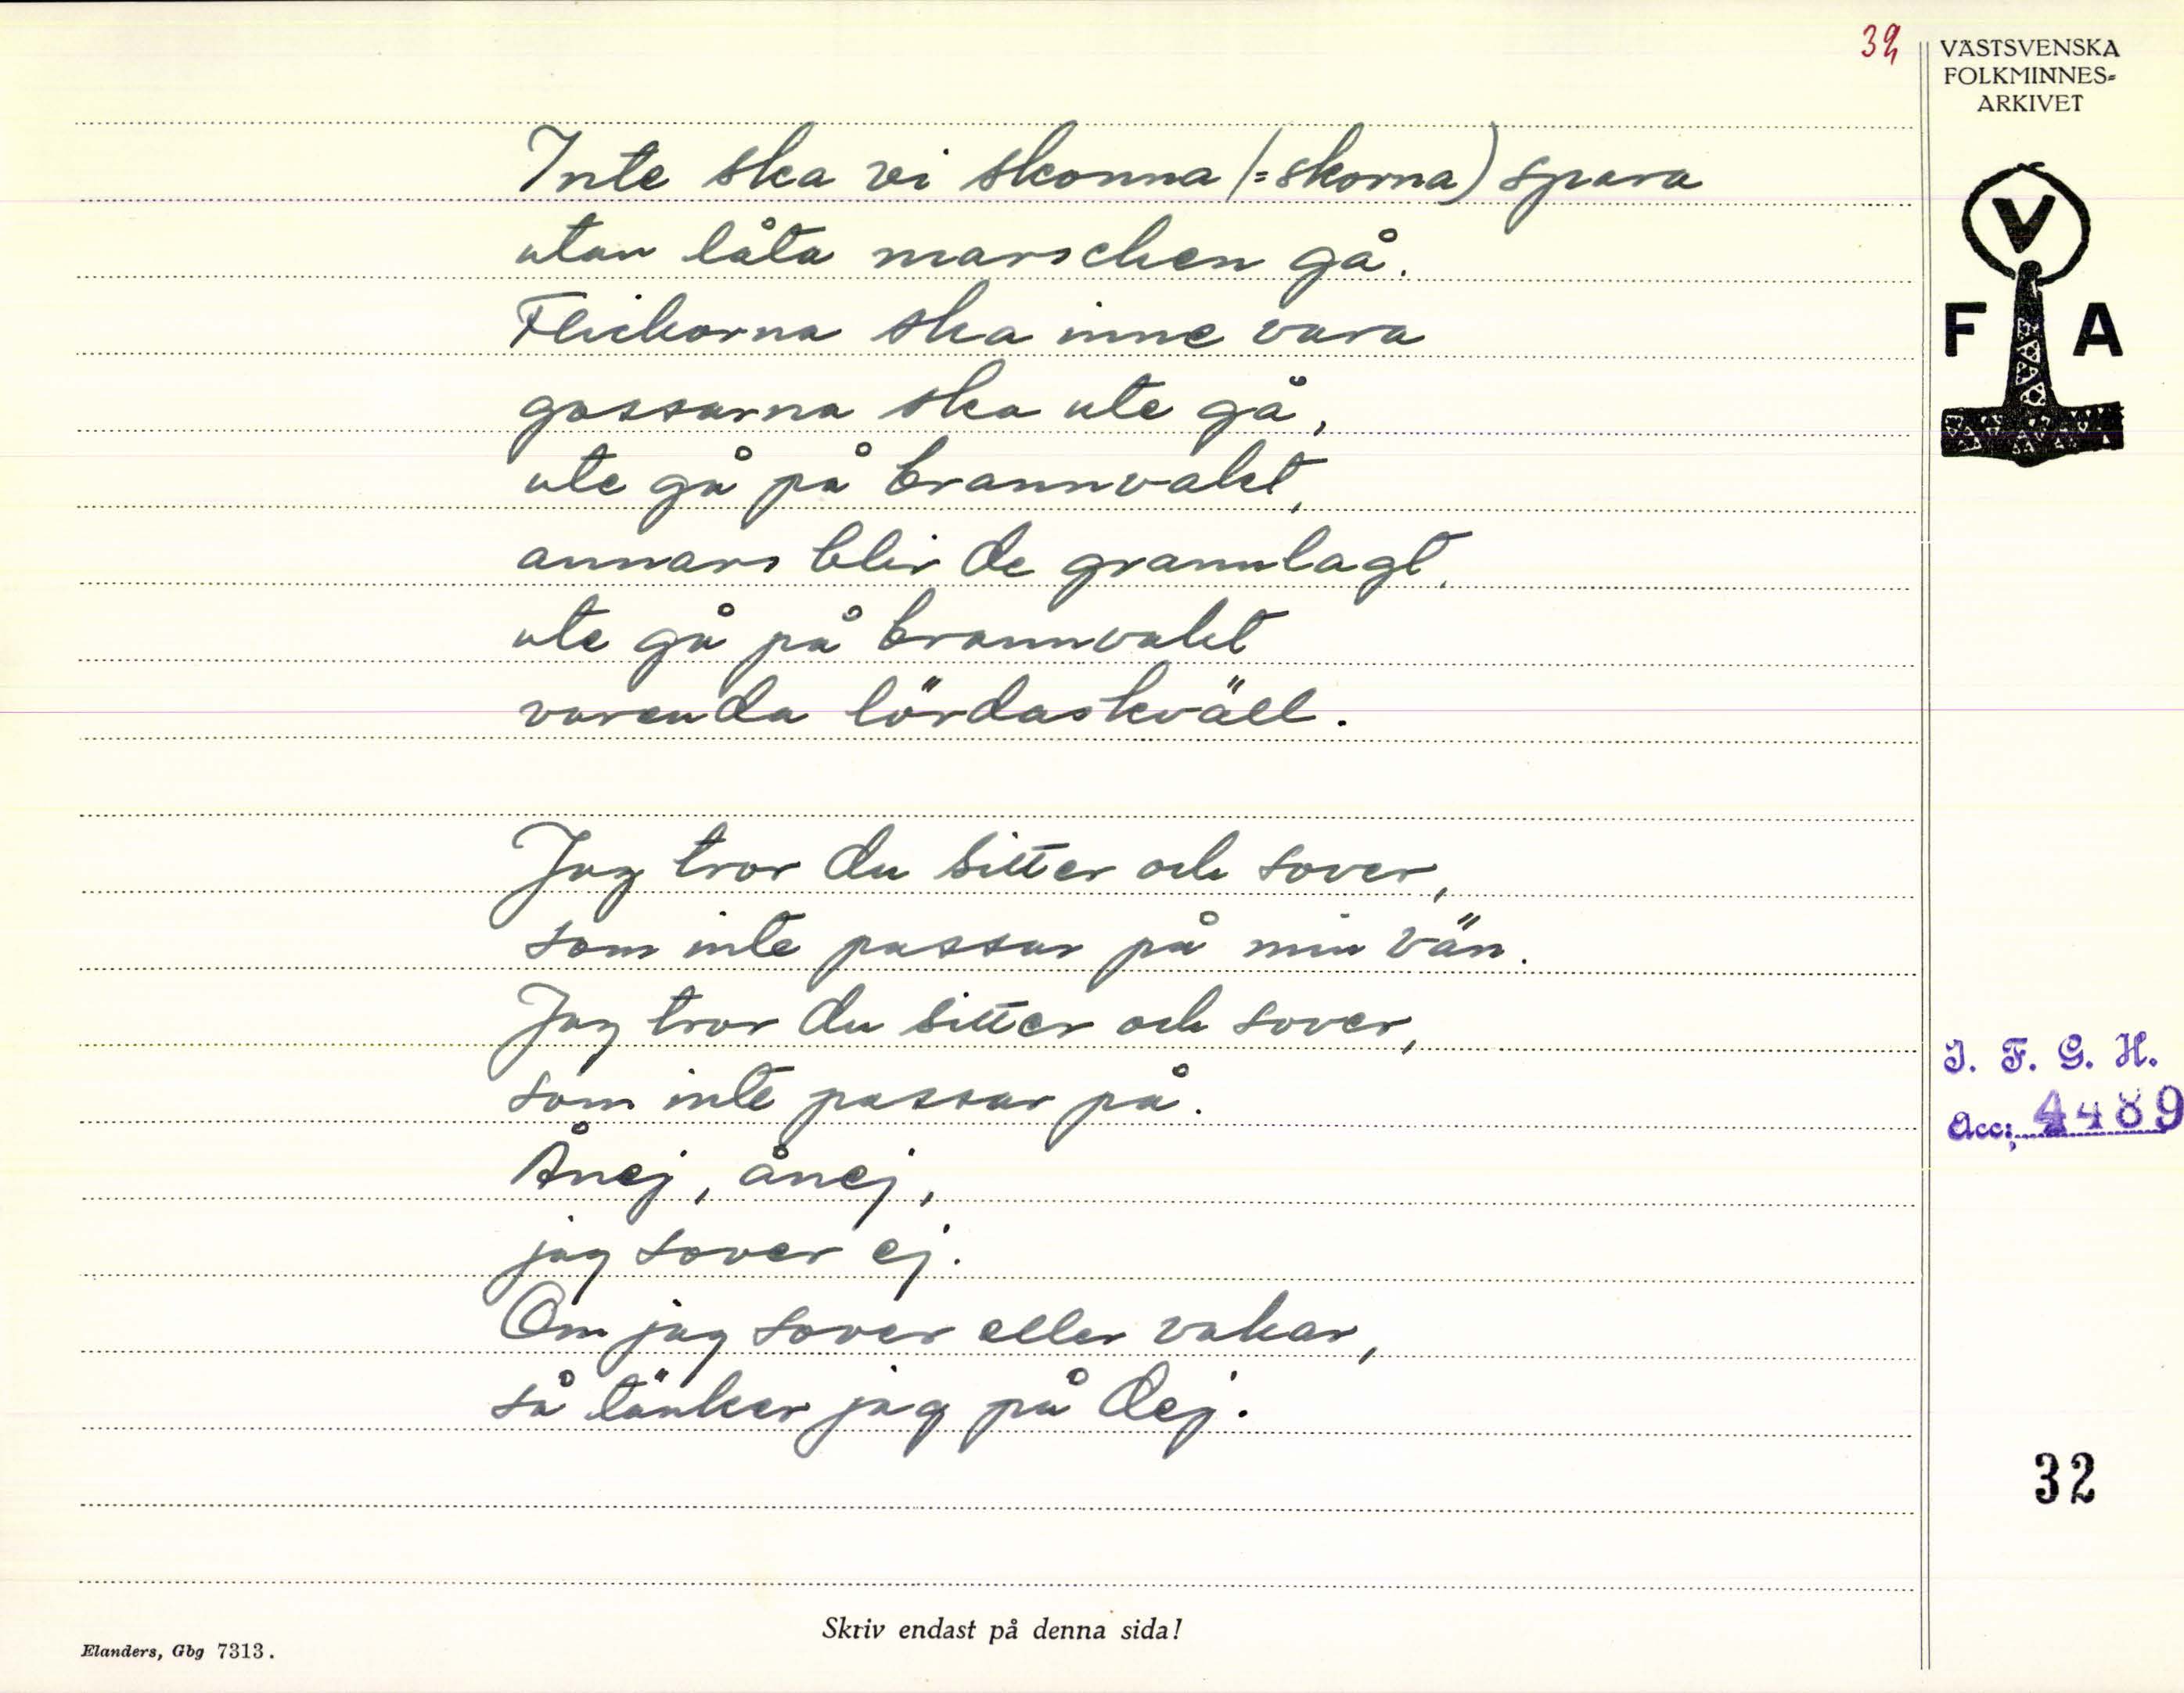 39
VÄSTSVENSKA
FOLKMINNES=
ARKIVET
V
F A
Inte ska vi skonna (=skorna) spara
utan låta marschen gå.
Flickorna ska inne vara
gossarna ska ute gå,
ute gå på brannvakt,
annars blir de grannlagt,
ute gå på brannvakt
varenda lördaskväll.
Jag tror du sitter och sover,
som inte passar på min vän.
Jag tror du sitter och sover,
som inte passar på.
Ånej, ånej,
jag sover ej.
Om jag sover eller vakar,
så tänker jag på dej.
I. F. G. H.
Acc: 4489
32
Skriv endast på denna sida!
Elanders, Gbg 7313.